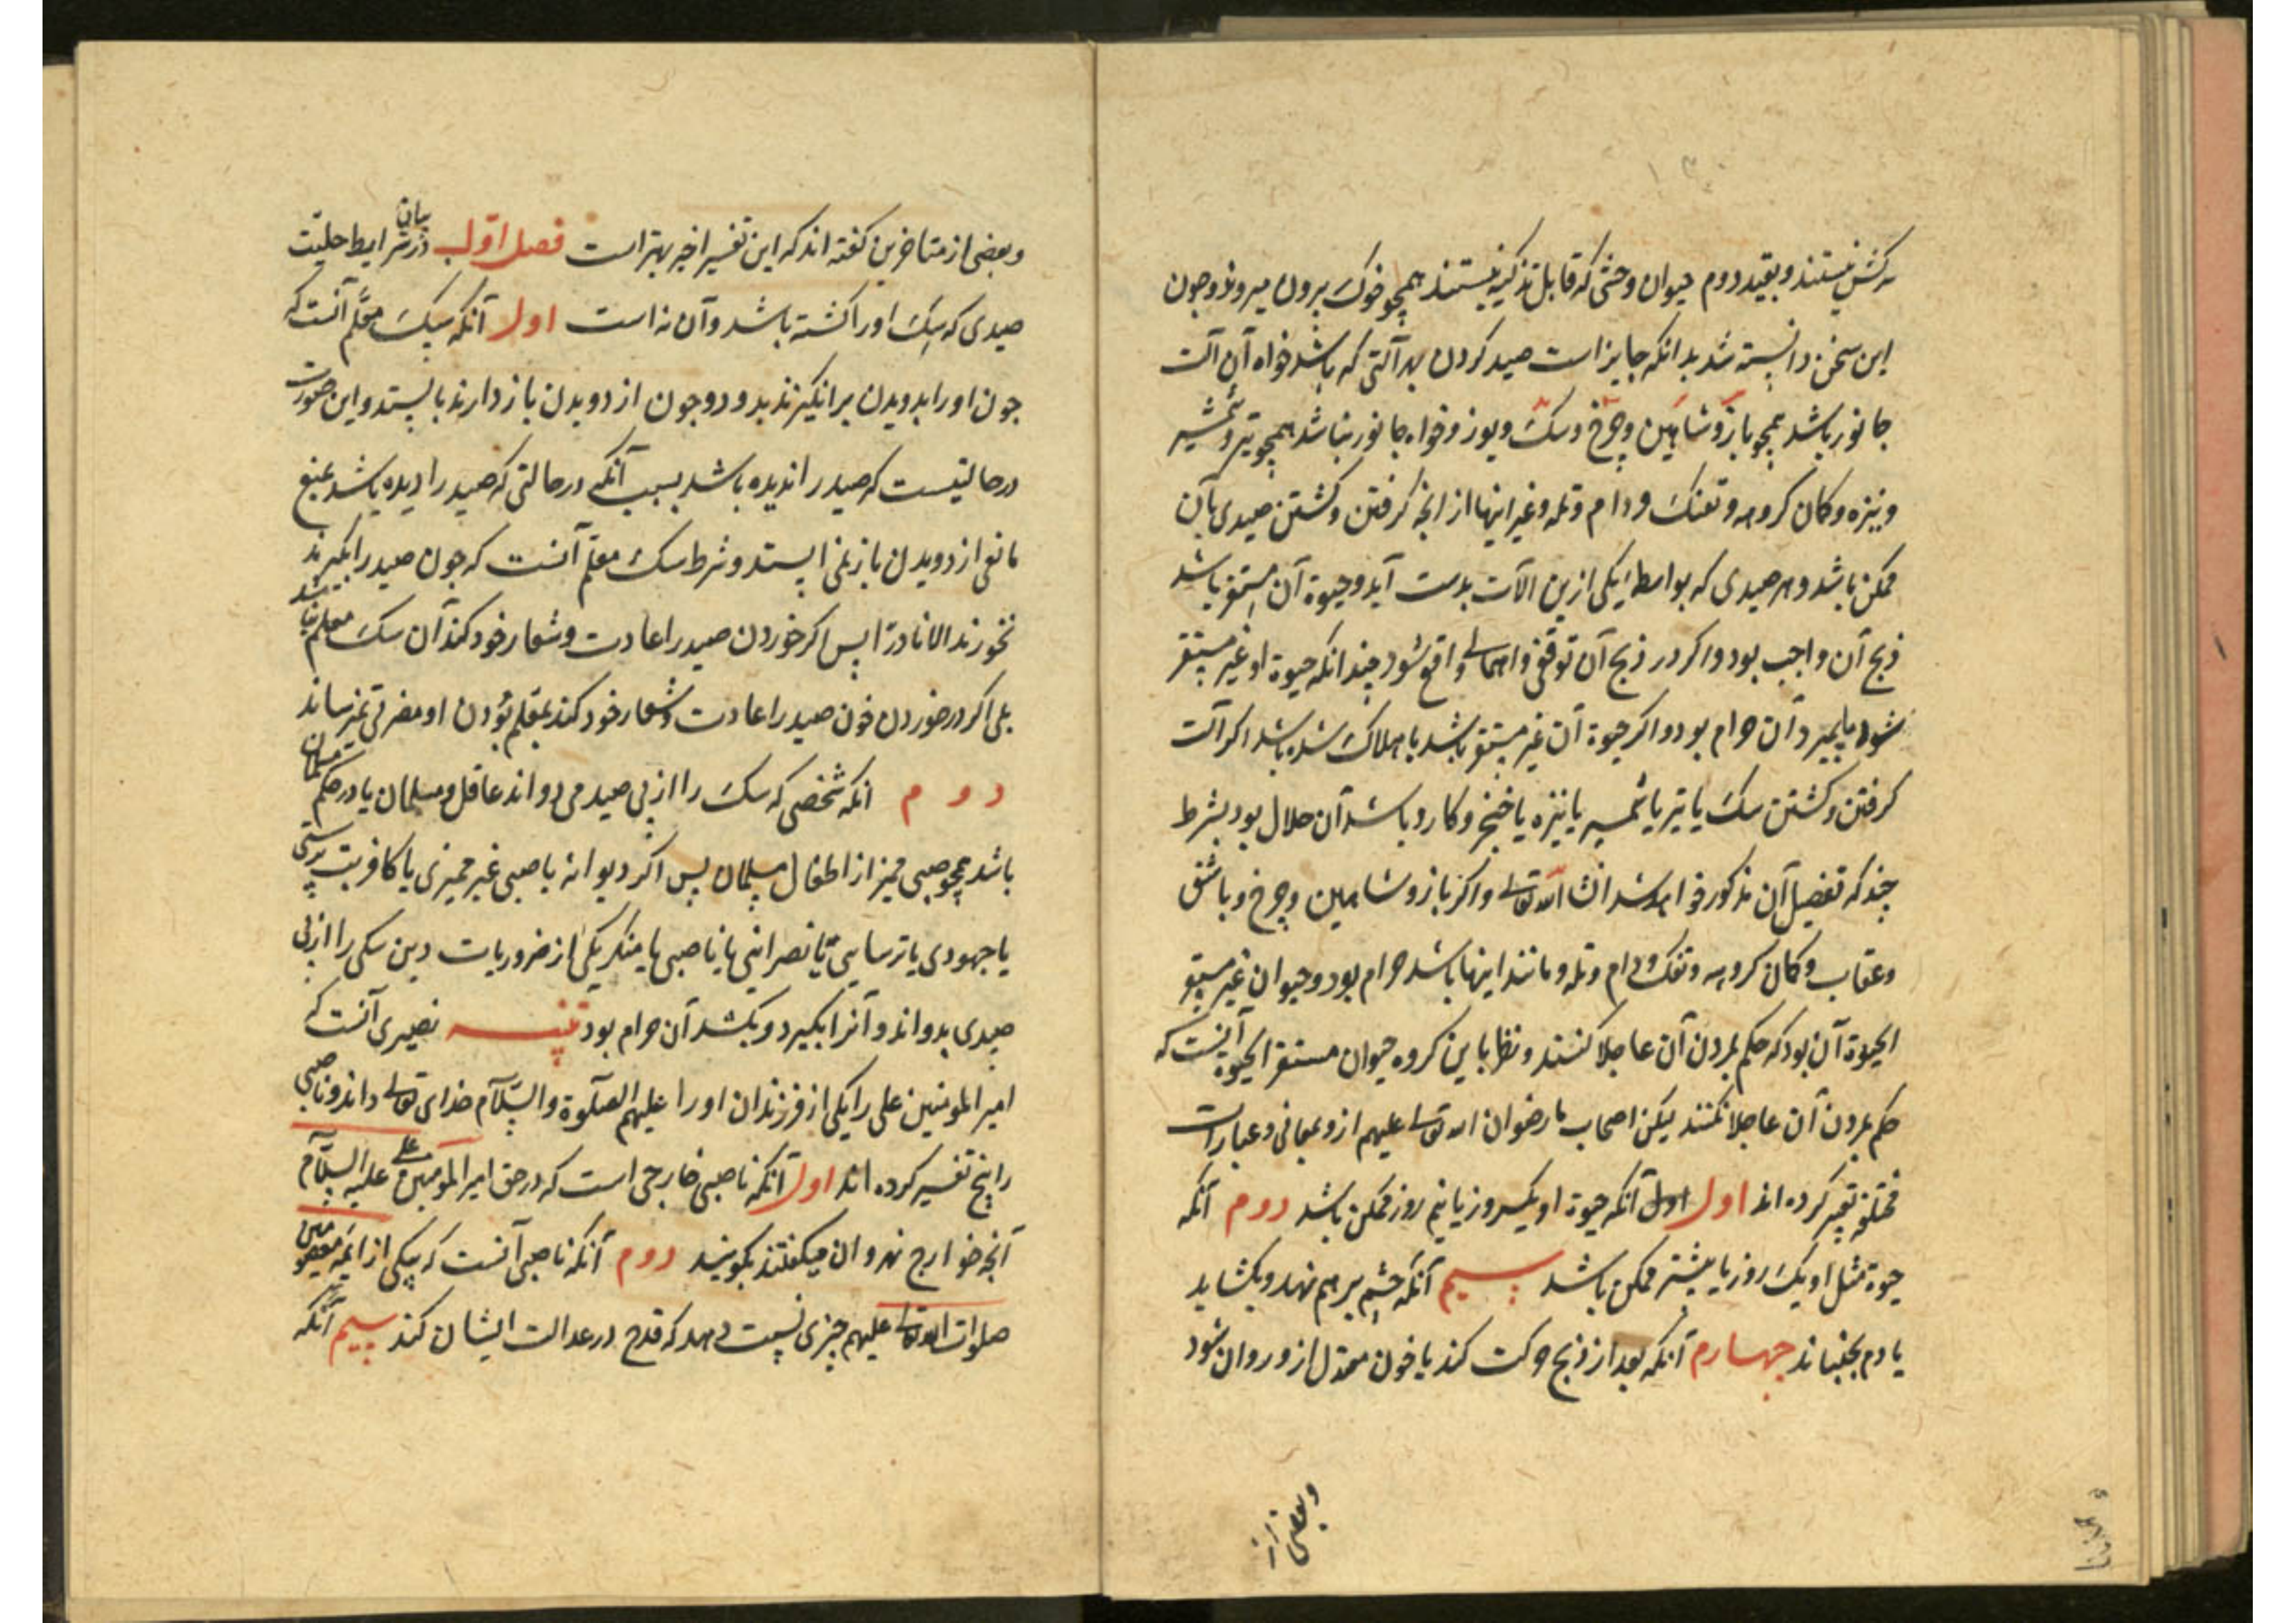 سرکش نیستند و بقید دوم حیوان وحشی که قابل تذکیه نیستند همچو خوک بیرون میروند و چون
این سخن دانسته شد بدانکه جایز است صید کردن بهر آلتی که باشد خواه آن آلت
جانور باشد همچو باز و شاهین و چرخ و سک و یوز و خواه جانور نباشد همچو تیر و شمشیر
و نیزه و کمان کروهه و تفنک و دام و تله و غیر اینها از آنچه کرفتن و کشتن صیدی بآن
ممکن باشد و هر صیدی که بواسطهٔ یکی ازین آلات بدست آید و حیوة آن مستقر باشد
ذبح آن واجب بود و اکر در ذبح آن توقفی و اهمالی واقع شود چندانکه حیوة او غیر مستقر
شود یا بمیرد آن حرام بود و اکر حیوة آن غیر مستقر باشد یا هلاک شده باشد اکر آلت
کرفتن و کشتن سک یا تیر یا شمشیر یا نیزه یا خنجر و کارد باشد آن حلال بود بشرط
چند که تفصیل آن مذکور خواهد شد انشا الله تعالی و اکر باز و شاهین و چرخ و باشق
و عقاب و کمان کروهه و تفنک و دام و تله و مانند اینها باشد حرام بود و حیوان غیر مستقر
الحیوة آن بود که حکم بمردن آن عاجلا کنند و نظر باین کروه حیوان مستقر الحیوة آینست که
حکم بمردن آن عاجلا نکنند لیکن اصحاب ما رضوان الله تعالی علیهم ازو بمعانی و عبارات
مختلفه تعبیر کرده اند اول اول آنکه حیوة او یکروز یا نیم روز ممکن باشد دوم آنکه
حیوة مثل او یک روز یا بیشتر ممکن باشد سیم آنکه چشم برهم نهد و بکشاید
یا دم بجنباند چهارم آنکه بعد از ذبح حرکت کند یا خون معتدل ازو روان شود
و بعضی از
و بعضی از متاخرین کفته اند که این تفسیر اخیر بهتر است فصل اول در بیان شرایط حلیت
صیدی که سک اورا کشته باشد و آن نه است اول آنکه سک معلّم آنست که
چون اورا بدویدن برانکیزند بدود و چون از دویدن باز دارند بایستد و این صورت
در حالتیست که صید را ندیده باشد بسبب آنکه در حالتی که صید را دیده باشد بمنع
مانعی از دویدن باز نمی ایستد و شرط سک معلّم آنست که چون صید را بکیرند
نخورند الا نادرا پس اکر خوردن صید را عادت و شعار خود کند آن سک معلم نباشد
بلی اکر در خوردن خون صید را عادت و شعار خود کند بمعلم بودن او مضرتی نمیرساند
دوم آنکه شخصی که سک را از پی صید می دواند عاقل و مسلمان یا در حکم مسلمان
باشد همچو صبی ممیز از اطفال مسلمان پس اکر دیوانه یا صبی غیر ممیزی یا کافر بت پرستی
یا جهودی یا ترسایی یا نصرانی یا ناصبی یا منکر یکی از ضروریات دین سکی را از پی
صیدی بدواند و آنرا بکیرد و بکشد آن حرام بود تنبیه نصیری آنست که
امیر المومنین علی را یکی از فرزندان اورا علیهم الصلوة والسّلام خدای تعالی داند و ناصبی
را پنج تفسیر کرده اند اول آنکه ناصبی خارجی است که در حق امیر المومنین علی علیه السّلام
آنچه خوارج نهروان میکفتند بکویند دوم آنکه ناصبی آنست که بیکی از ائمه معصومین
صلوات الله تعالی علیهم چیزی نسبت دهد که قدح در عدالت ایشان کند سیم آنکه